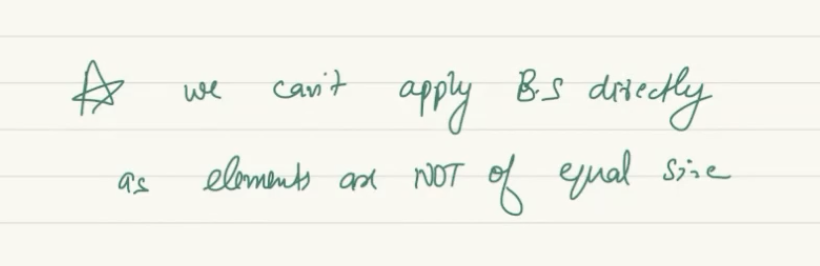 ☆ we can't apply B.S directly
as elements are NOT of equal size